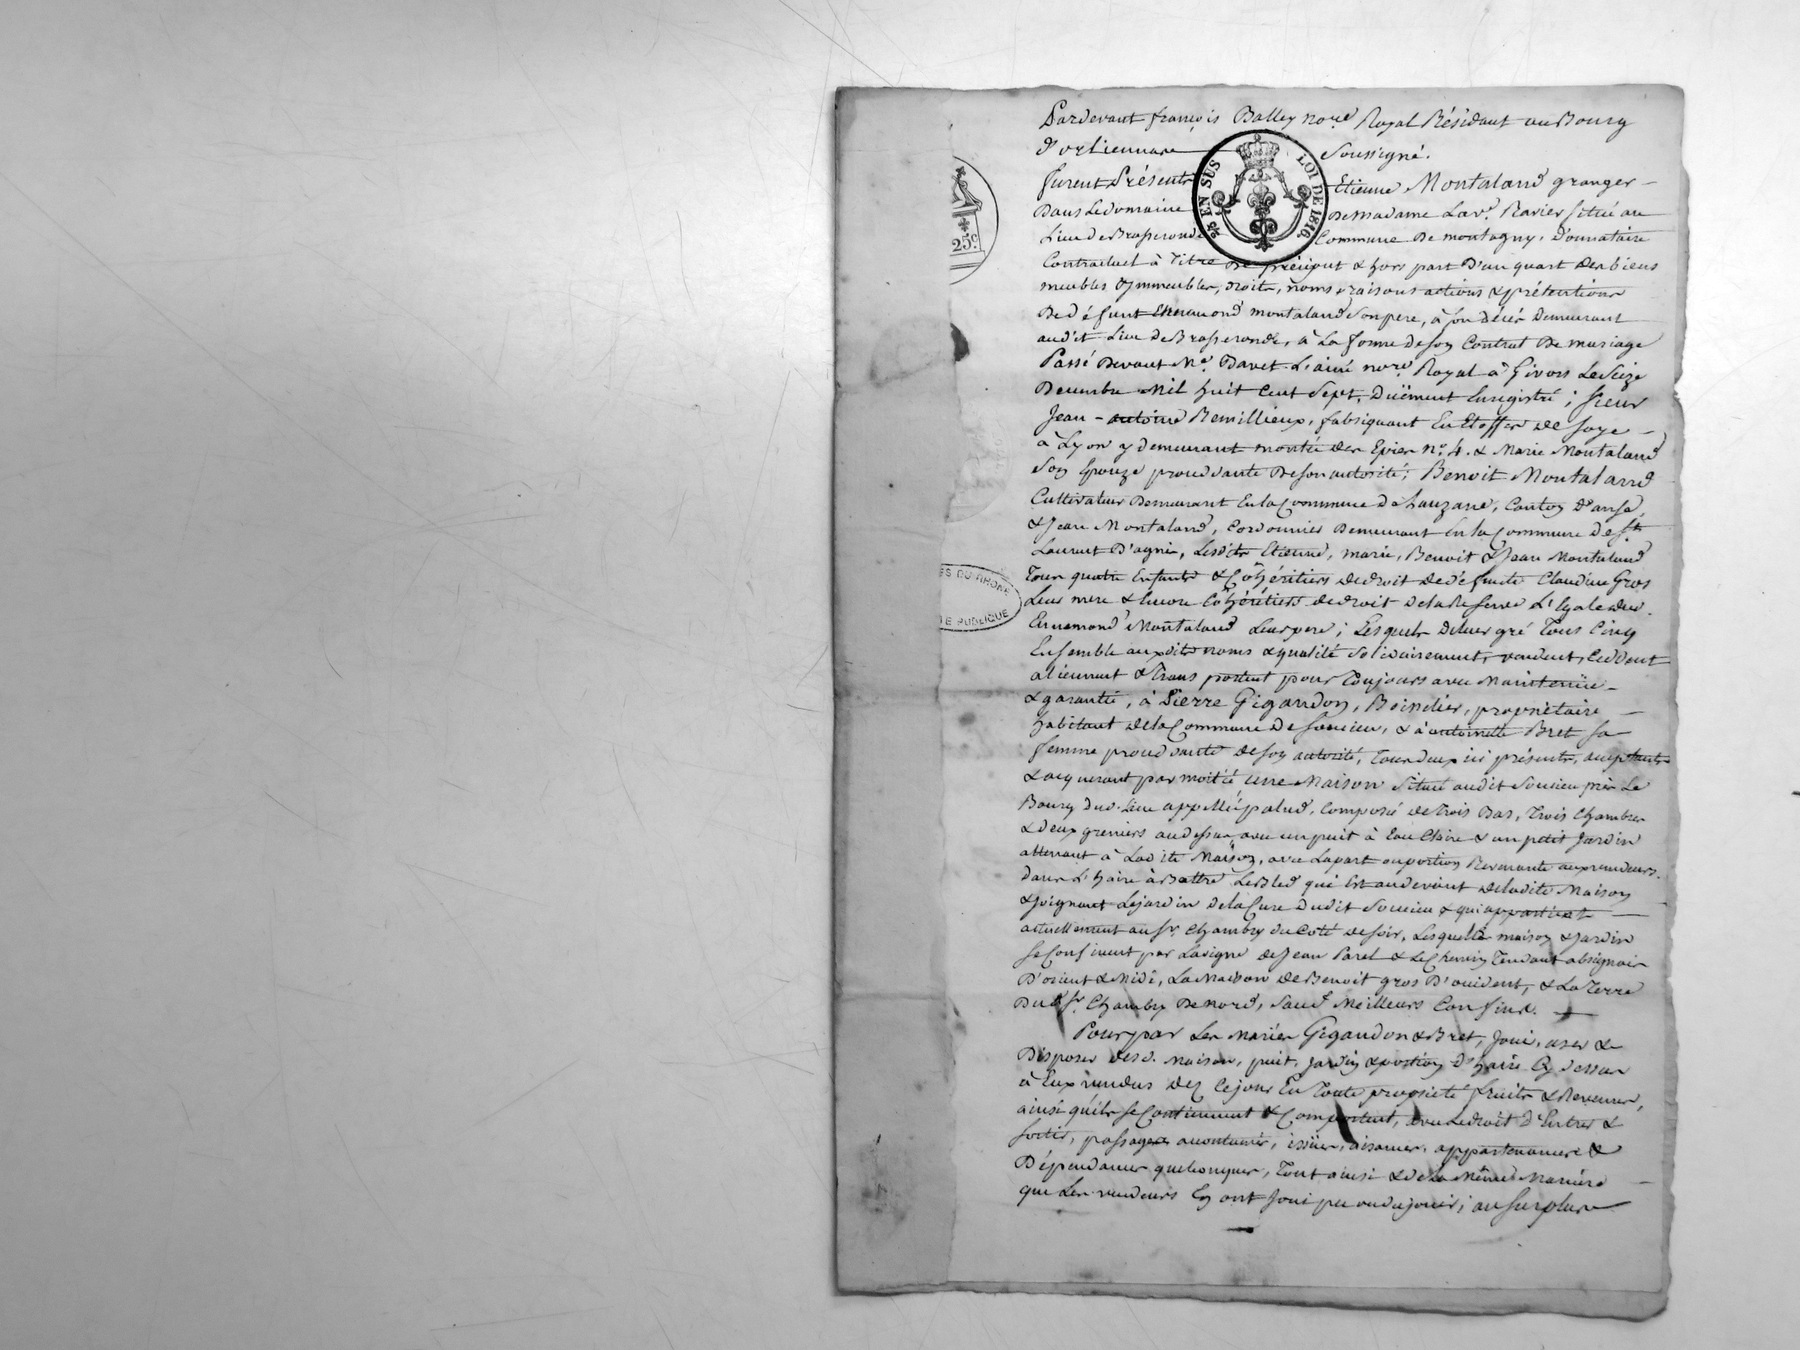 Pardevant françois Balley nore Royal Résidant au Bourg
d'orliennare soussigné.
furent Présents Etienne Montaland granger
Dans Le domaine De Madame La ve. Ravier situé au
Lieu de Brasseronde Commune De montagny, Donnataire
Contractuel à Titre De préciput & hors part D'un quart Des biens
meubles & ymmeubles, droits, noms, raisons actions & prétentions
De défunt Ennemond montaland son pere, à son décès demeurant
audit Lieu de Brasseronde, à La forme de son Contrat De mariage
Passé Devant Me. Davet L'ainé nore Royal à Givors Le seize
Decembre Mil huit Cent Sept, Duëment Enregistré ; sieur
Jean - antoine Remillieux, fabriquant En Etoffes de soye
à Lyon y demeurant montée des Epies no. 4. & Marie Montaland
son Epouze procedante De son autorité ; Benoit Montaland
Cultivateur Demeurant En la Commune de Lauzane, Canton d'anse,
& Jean Montaland, Cordonnier Demeurant En la Commune de St.
Laurent D'agni, Lesdits Etienne, marie, Benoit & Jean Montaland
Tous quatre Enfants & Cohéritiers de droit de défunte Claudine Gros
Leur mere & Encore Cohéritiers de droit de la Reserve L'égale dud.
Ennemond Montaland Leur pere ; Lesquels de leur gré Tous Cinq
Ensemble auxdits noms & qualité solidairement, vendent, Cedent
aliennent & Transportent pour Toujours avec Maintenüe
& garantie, à Pierre Gigandon, Boindier, propriétaire
habitant de la Commune de soucieu, & à antoinette Bret sa
femme procedante de son autorité, Tous deux ici présents, acceptants
& acquerant par moitié une Maison située audit Soucieu près Le
Bourg dud. Lieu appellé palud, Composé de Trois Bas, Trois Chambres
& deux greniers au dessus, avec un puit à Eau Claire & un petit Jardin
attenant à Ladite Maison, avec La part ou portion Revenante aux vendeurs
dans L'haire à Battre Le Bled qui Est au devant de ladite Maison
& joignant Le jardin de la Cure dudit Soucieu & qui appartient
actuellement au sr. Chambry du Coté de soir, Lesquelles maison & jardin
se Confinent par La vigne de Jean Paret & Le Chemin Tendant
D'orient & Midi, La Maison de Benoit gros D'occident, & La Terre
Dud. Sr. Chambry De nord, Sauf Meilleurs Confins.
Pour par Les Mariés Gigandon & Bret, Jouir, user &
Disposer desd. Maison, puit, Jardin & portion D'haire Cy dessus
à Eux vendus dez Ce jour En Toute propriété fruits & Revenus,
ainsi qu'ils se Contiennent & Comportent, avec Le droit d'Entrer &
sortir, passages accoutumés, issües, aisances, appartenances &
Dépendances quelconques, Tout ainsi & de La Même Manière
que Les vendeurs En ont Joui peu ou du jouir ; au Surplus
25 EN SUS
LOI DE 1816
25c
ES DU RHONE
E PUBLIQUE